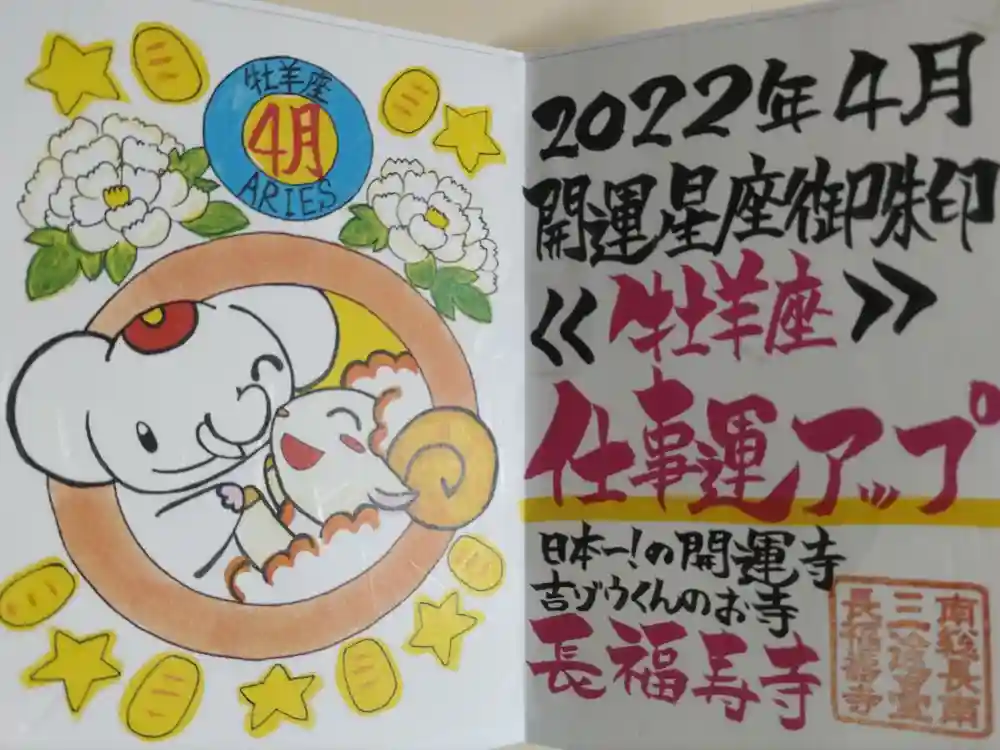 牡羊座
4月
ARIES
2022年4月
開運星座御朱印
<<牡羊座>>
仕事運アップ
日本一!の開運寺
吉ゾウくんのお寺
長福寿寺